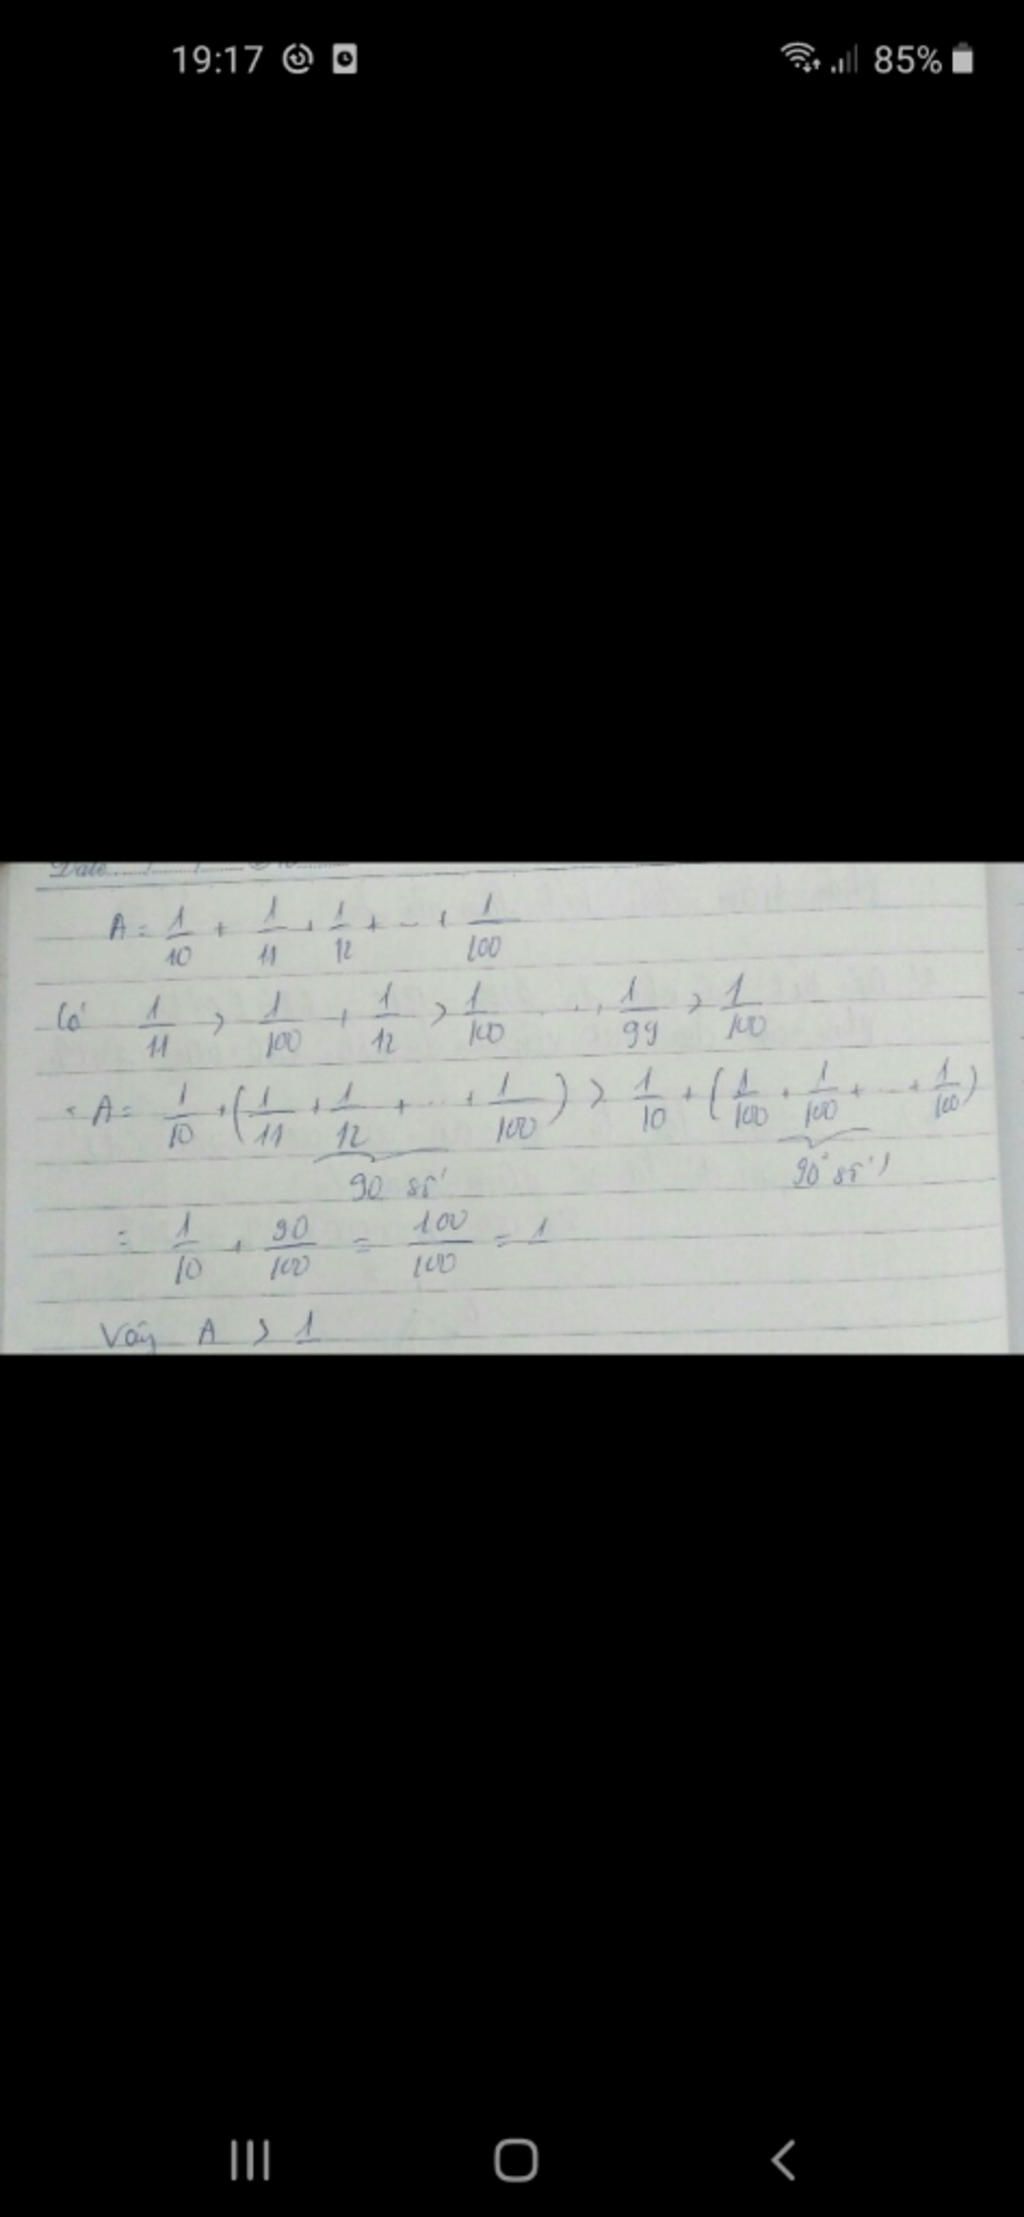 19:17 85%
Date
A = 1/10 + 1/11 + 1/12 + ... + 1/100
Có 1/11 > 1/100 , 1/12 > 1/100 ... , 1/99 > 1/100
A = 1/10 + (1/11 + 1/12 + ... + 1/100) > 1/10 + (1/100 + 1/100 + ... + 1/100)
90 số 90 số
= 1/10 + 90/100 = 100/100 = 1
Vậy A > 1